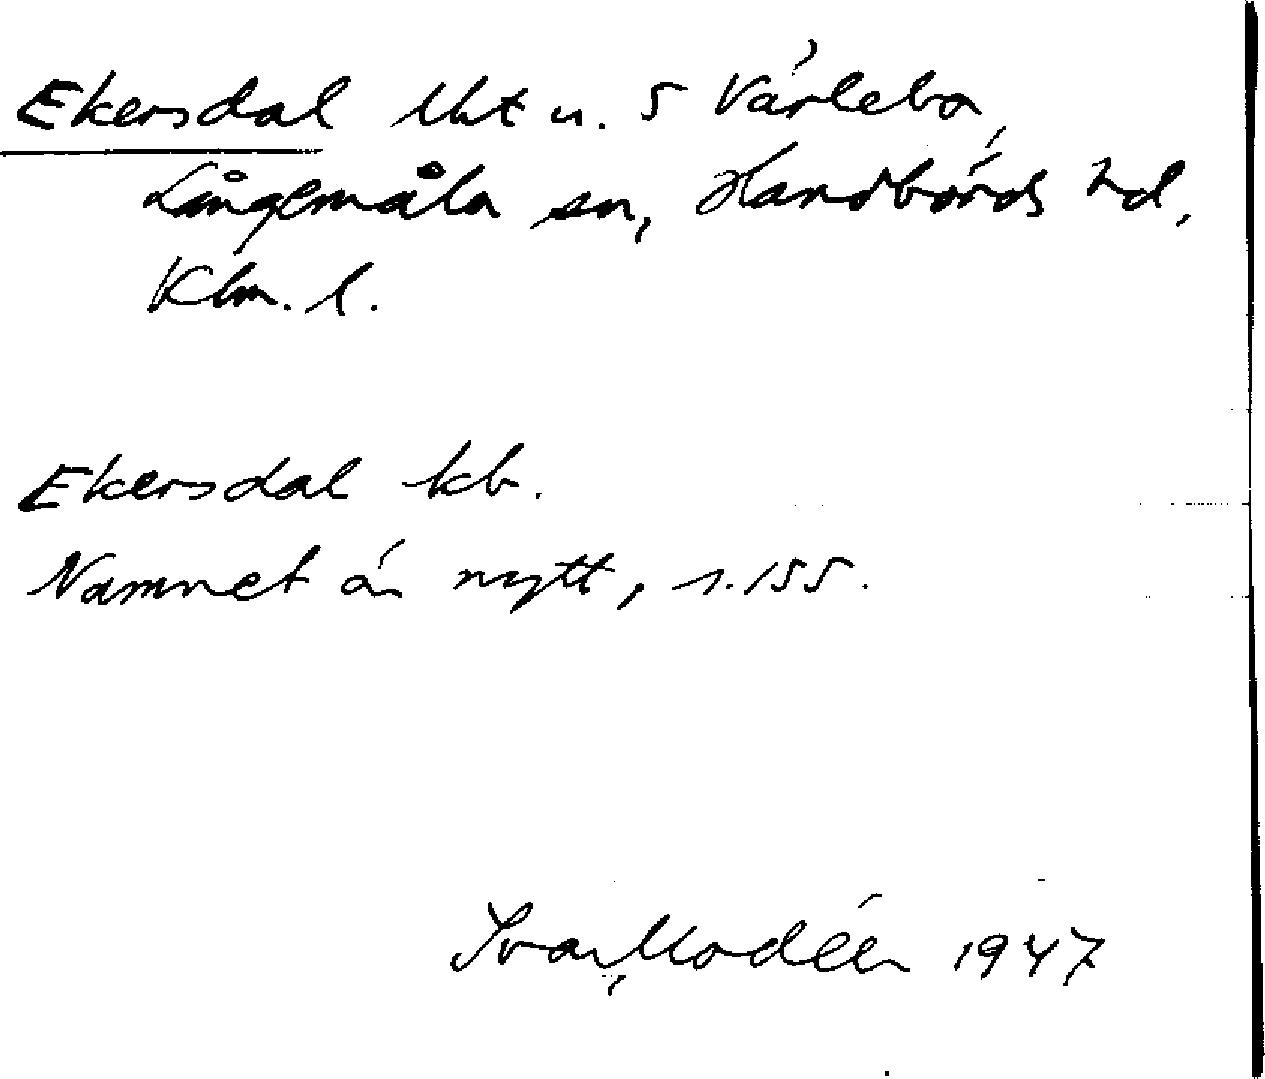 Ekersdal lht u. 5 Värlebo,
Långemåla sn, Handbörds hd,
Klm. l.
Ekersdal kb.
Namnet är nytt, s. 155.
Ivar Modéer 1947